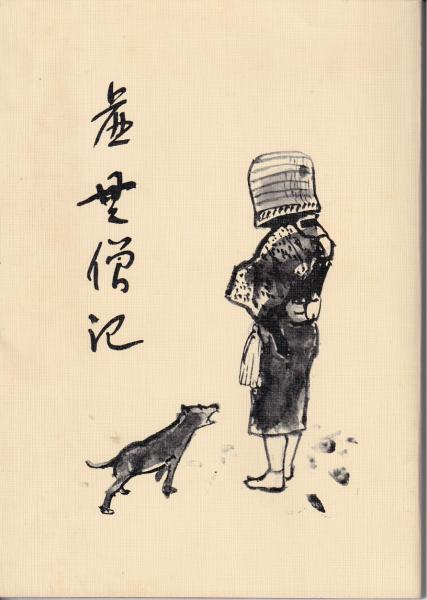 虚無僧記